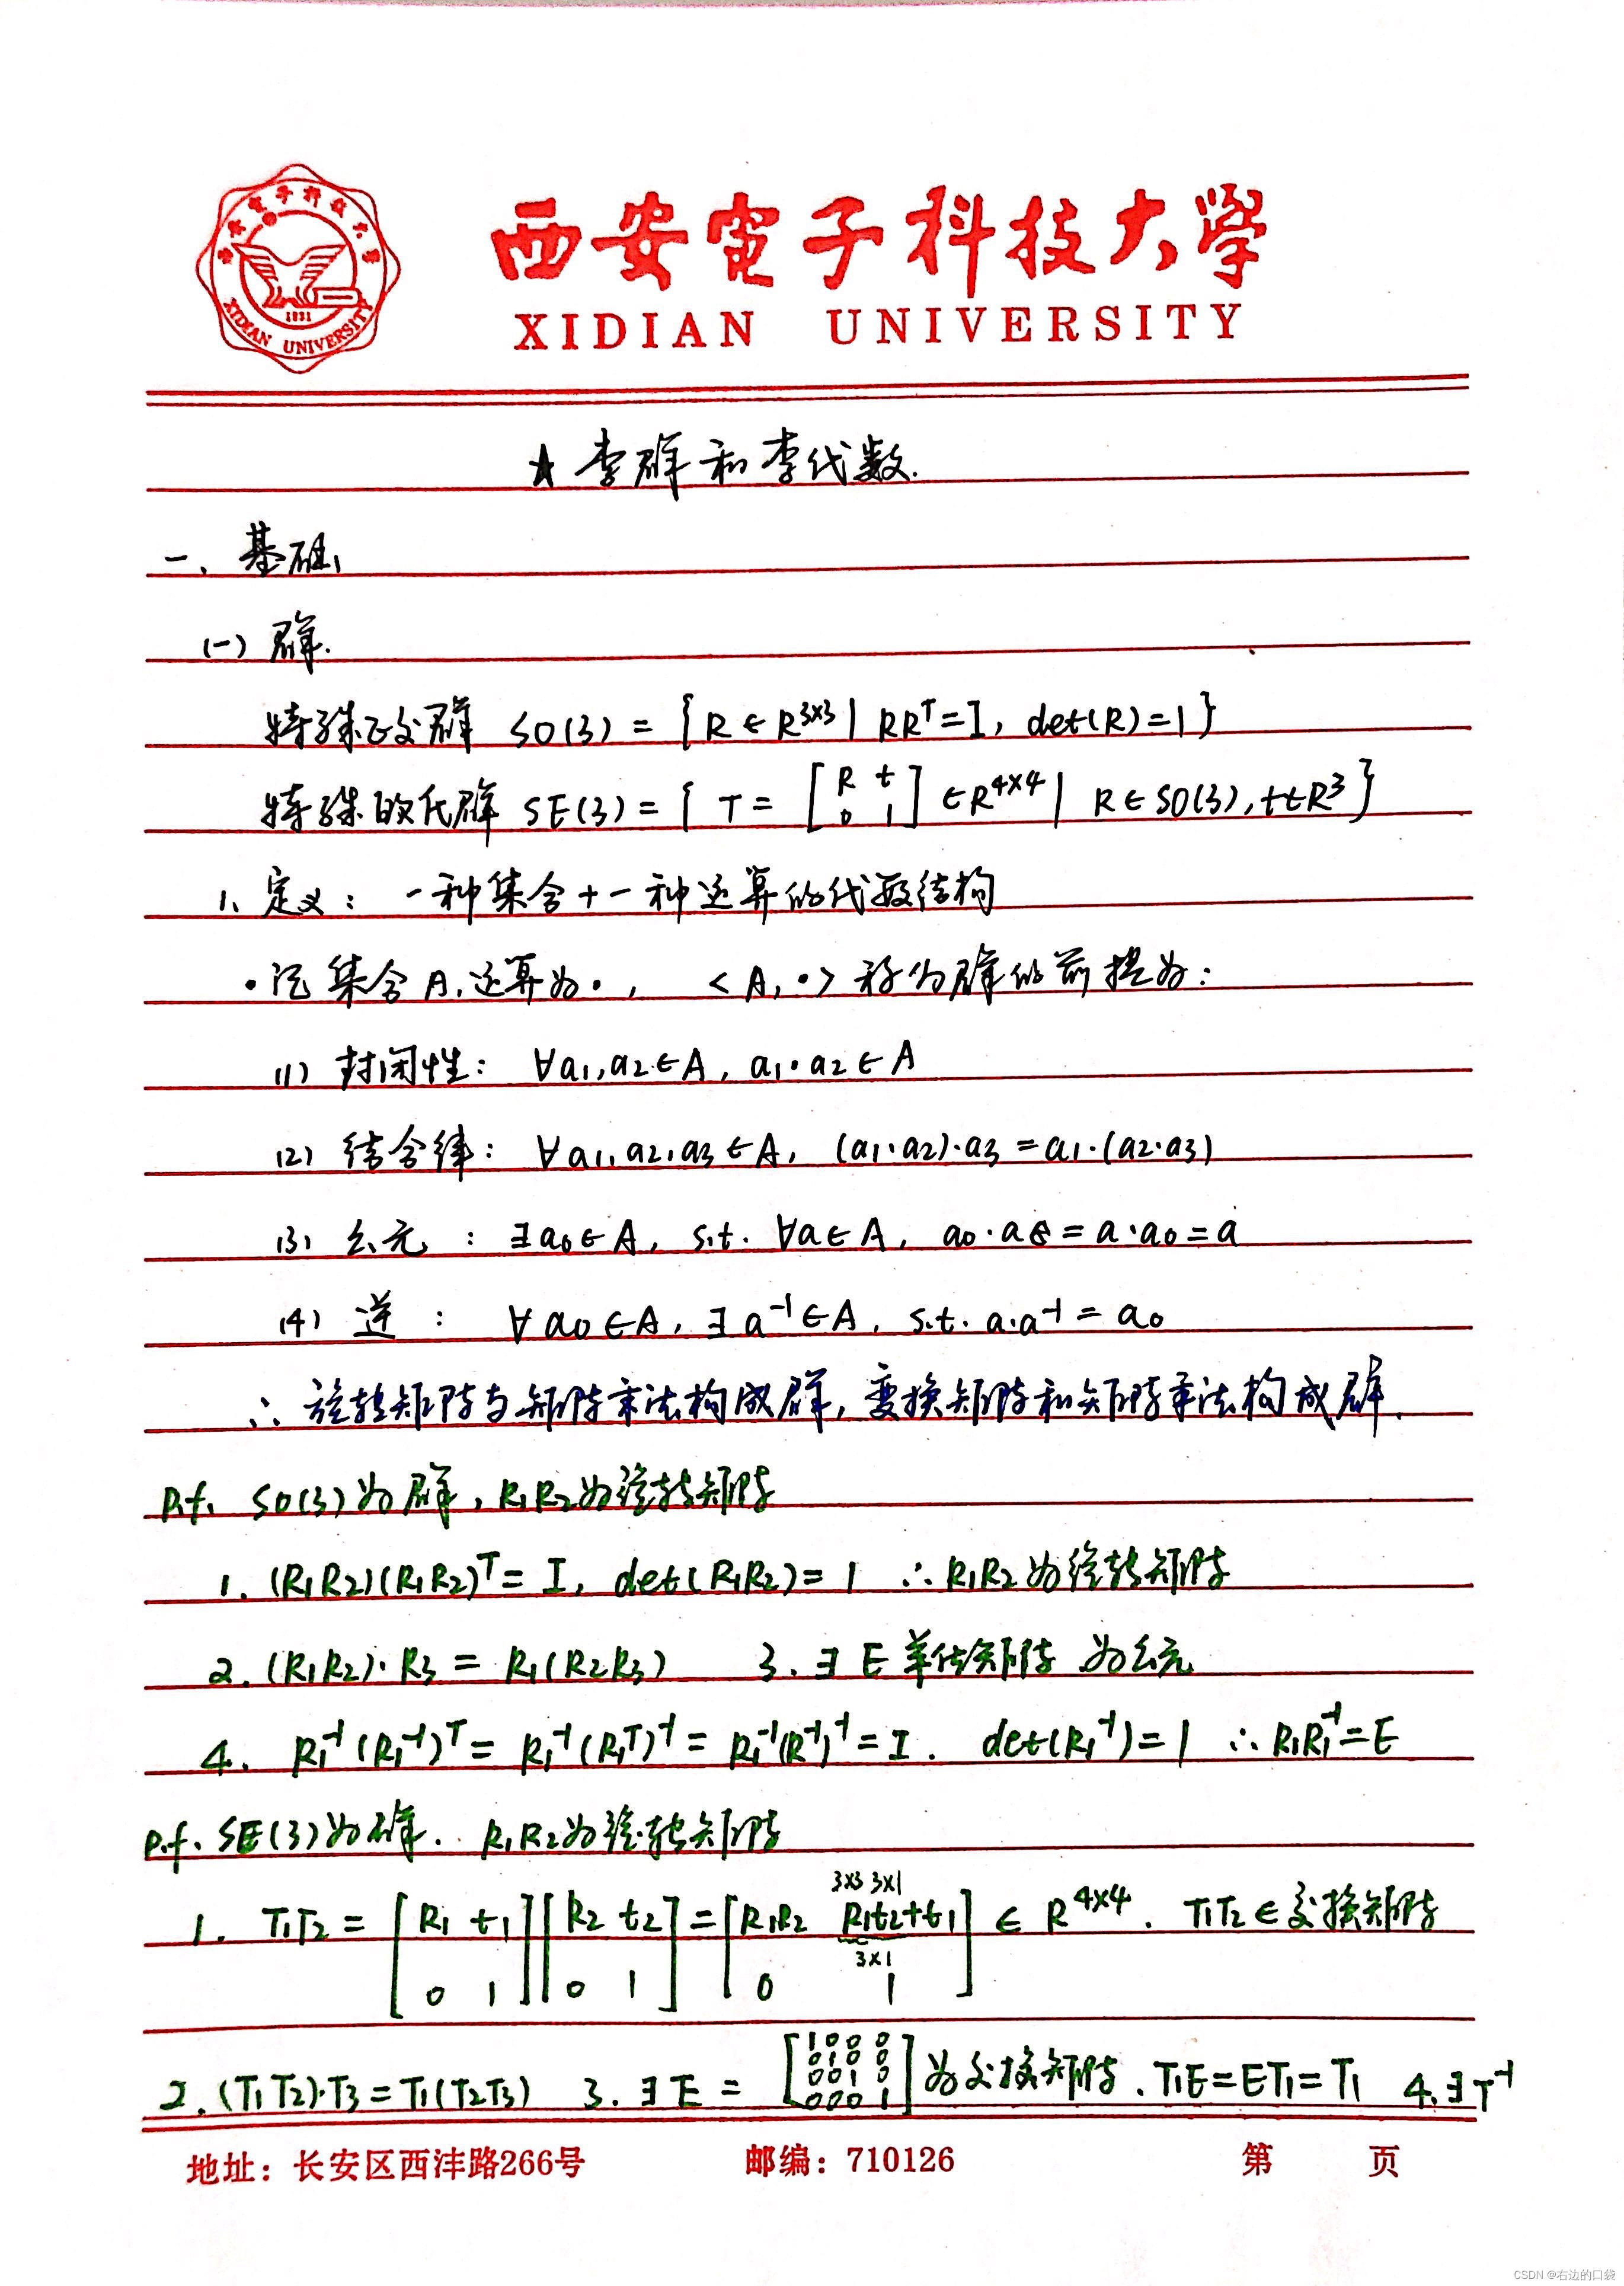 西安電子科技大学
XIDIAN UNIVERSITY
1931
XIDIAN UNIVERSITY
★ 李群和李代数.
一、基础
(一) 群.
特殊正交群 SO(3) = { R ∈ R^{3×3} | RR^T = I, det(R) = 1 }
特殊欧氏群 SE(3) = { T = [R t; 0 1] ∈ R^{4×4} | R ∈ SO(3), t ∈ R^3 }
1、定义: 一种集合+一种运算的代数结构
·记集合A,运算为·, <A,·>称为群的前提为:
(1) 封闭性: ∀a1,a2∈A, a1·a2∈A
(2) 结合律: ∀a1,a2,a3∈A, (a1·a2)·a3=a1·(a2·a3)
(3) 幺元: ∃a0∈A, s.t. ∀a∈A, a0·a=a·a0=a
(4) 逆: ∀a0∈A, ∃a^{-1}∈A, s.t. a·a^{-1}=a0
∴ 旋转矩阵与矩阵乘法构成群, 变换矩阵和矩阵乘法构成群.
p.f. SO(3)为群, R1R2为旋转矩阵
1. (R1R2)(R1R2)^T = I, det(R1R2) = 1 ∴R1R2为旋转矩阵
2. (R1R2)·R3 = R1(R2R3) 3. ∃ E 单位矩阵 为幺元
4. R1^{-1}(R1^{-1})^T = R1^{-1}(R1^T)^{-1} = R1^{-1}(R^{-1})^{-1} = I. det(R1^{-1}) = 1 ∴R1R1^{-1}=E
p.f. SE(3)为群. R1R2为旋转矩阵
3×3 3×1
1. T1T2 = [R1 t1; 0 1][R2 t2; 0 1] = [R1R2 R1t2+t1; 0 1] ∈ R^{4×4}. T1T2∈变换矩阵
3×1
2. (T1T2)·T3=T1(T2T3) 3. ∃E = [1 0 0 0; 0 1 0 0; 0 0 1 0; 0 0 0 1] 为变换矩阵. T1E=ET1=T1 4. ∃T^{-1}
地址: 长安区西沣路266号 邮编: 710126 第 页
CSDN @右边的口袋